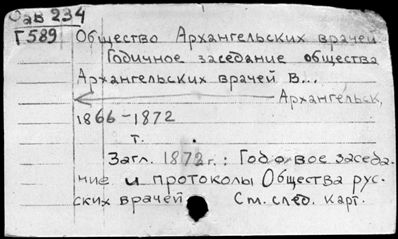 Оав 234
Г589
Общество Архангельских врачей
Годичное заседание общества
Архангельских врачей в...
Архангельск,
1866-1872
т.
Загл. 1872 г.: Годовое заседа-
ние и протоколы Общества рус-
ских врачей См. след. карт.